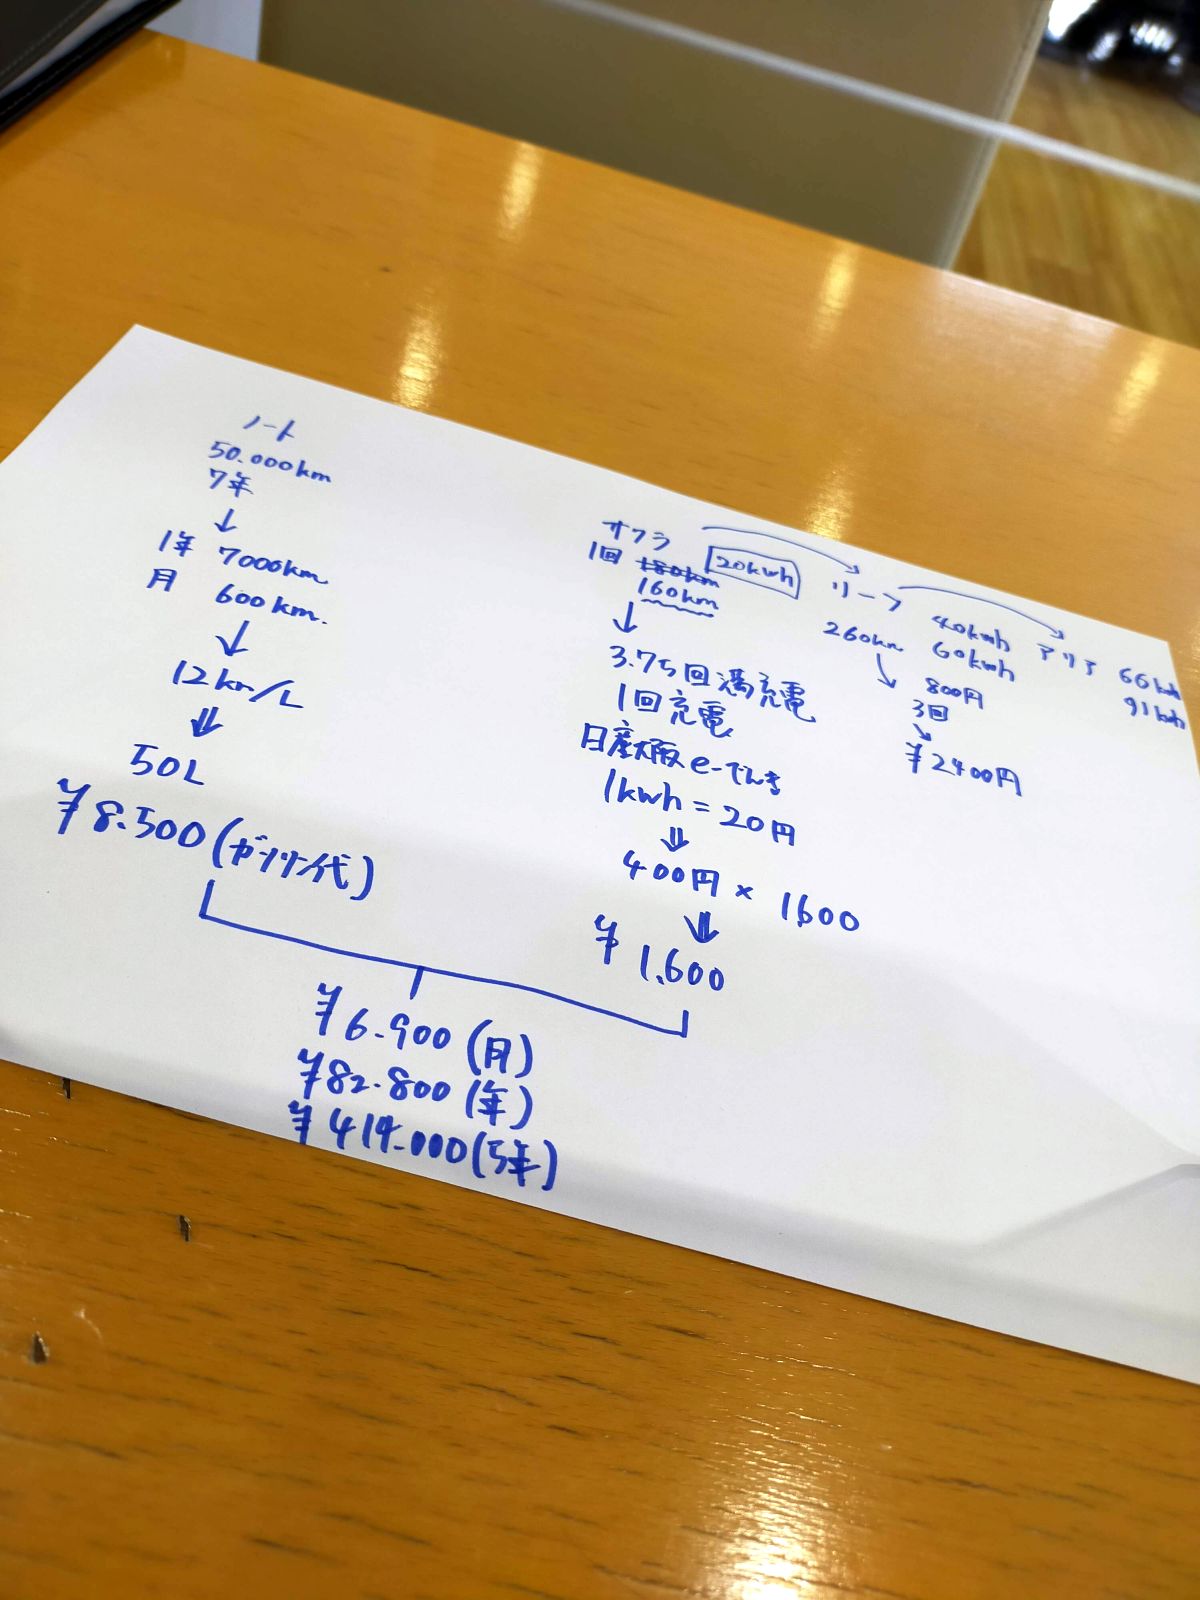 ノート
50.000km
7年
↓
1年 7000km
月 600km.
↓
12km/L
⇓
50L
¥8.500(ガソリン代)
サクラ
1回 180km 20kwh
160km
↓
3.75回満充電
1回充電
日産大阪e-でんき
1kwh = 20円
⇓
400円 × 1600
⇓
¥ 1.600
リーフ 40kwh
260km 60kwh
↓ 800円
3回
↓
¥2400円
アリア 66kwh
91kwh
¥6.900 (月)
¥82.800 (年)
¥414.000(5年)